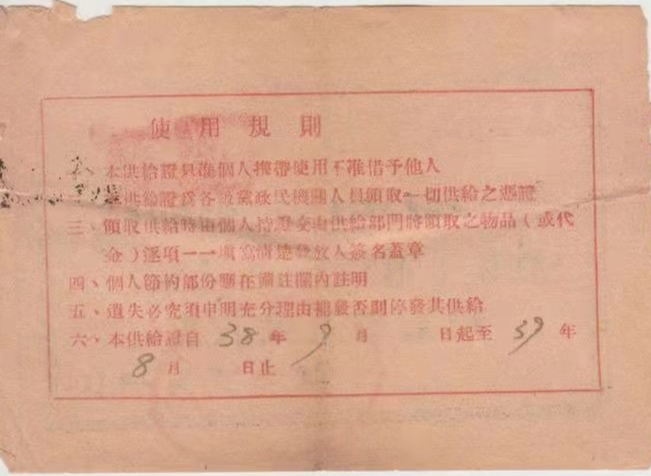 使用規則
本供給證只准個人攜帶使用不准借予他人
供給證爲各級黨政民機關人員領取一切供給之憑證
三、領取供給時由個人持證交由供給部門將領取之物品（或代
金）逐項一一填寫清楚發放人簽名蓋章
四、個人節約部份應在備註欄內註明
五、遺失必究須申明充分理由補發否則停發其供給
六、本供給證自 38 年 9 月 日起至 39 年
8 月 日止